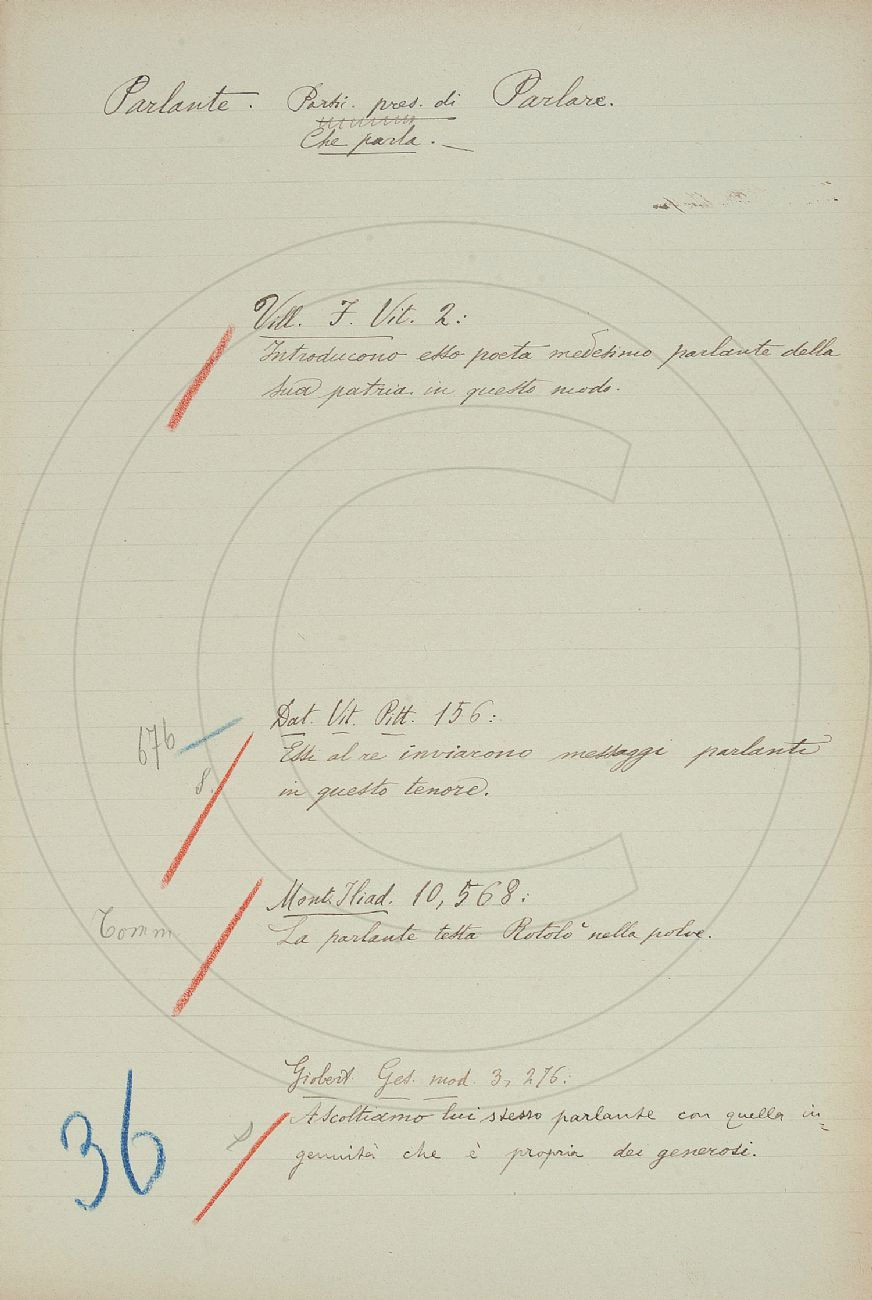 Parlante. Partic. pres. di Parlare.
Che parla.
Vill. F. Vit. 2:
Introducono esso poeta medesimo parlante della
sua patria in questo modo.
676
Dat. Vit. Pitt. 156:
Essi al re inviarono messaggi parlanti
in questo tenore.
Mont. Iliad. 10, 568:
Tomm
La parlante testa Rotolò nella polve.
Giobert. Ges. mod. 3, 276:
Ascoltiamo lui stesso parlante con quella in-
genuità che è propria dei generosi.
36